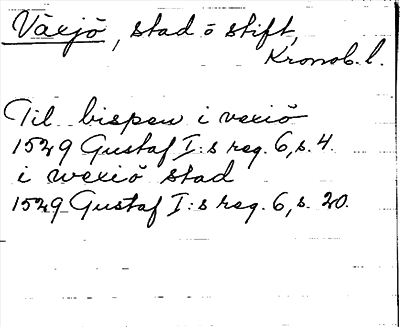 Växjö, stad o stift,
Kronob. l.
Til bispen i vexiö
1529 Gustaf I:s reg. 6, s. 4.
i wexiö stad
1529 Gustaf I:s reg. 6, s. 20.